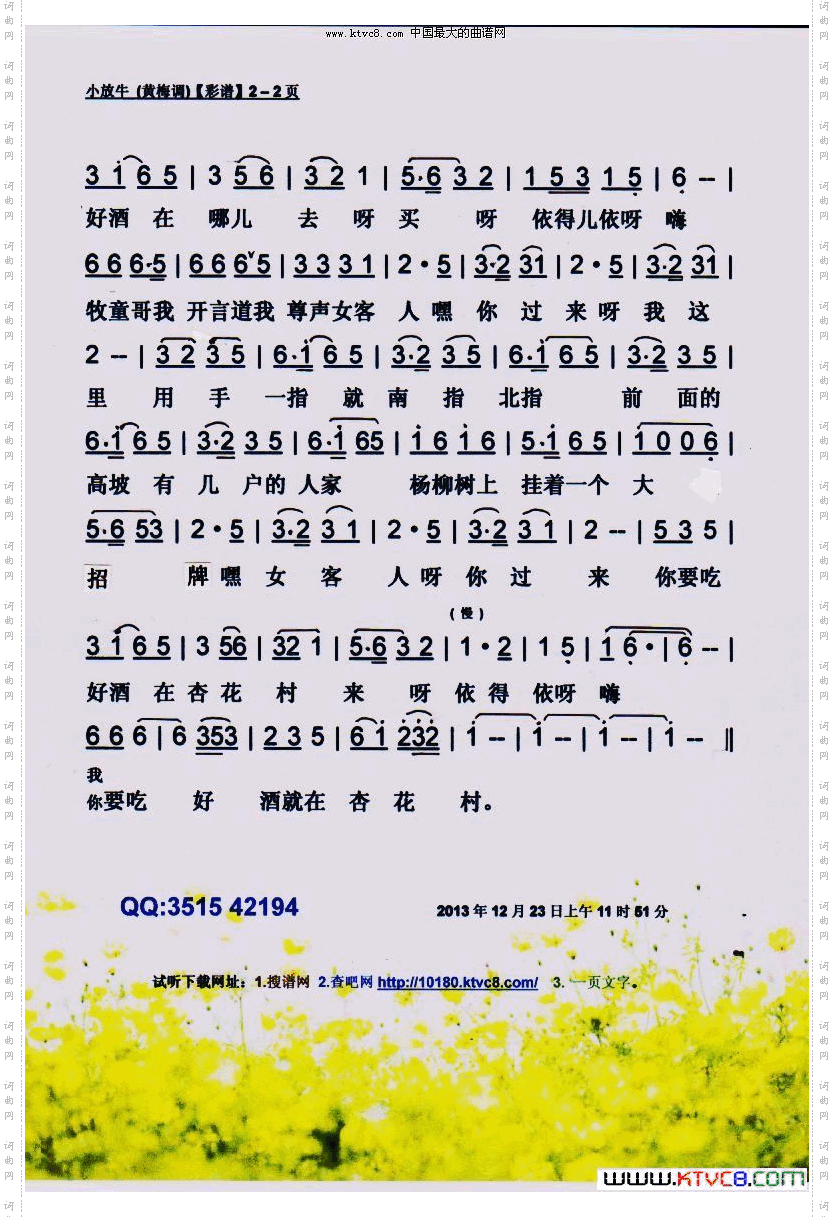 www.ktvc8.com 中国最大的曲谱网
小放牛 (黄梅调)【彩谱】2－2页
3 1 6 5 | 3 5 6 | 3 2 1 | 5·6 3 2 | 1 5 3 1 5 | 6 -- |
好酒 在 哪儿 去 呀 买 呀 依得儿依呀 嗨
6 6 6·5 | 6 6 6ˇ5 | 3 3 3 1 | 2·5 | 3·2 31 | 2·5 | 3·2 31 |
牧童哥我 开言道我 尊声女客 人 嘿 你 过 来 呀 我 这
2 -- | 3 2 3 5 | 6·1 6 5 | 3·2 3 5 | 6·1 6 5 | 3·2 3 5 |
里 用 手 一指 就 南 指 北指 前 面的
6·1 6 5 | 3·2 3 5 | 6·1 65 | 1 6 1 6 | 5·1 6 5 | 1 0 0 6 |
高坡 有 几 户的 人家 杨柳树上 挂着一个 大
5·6 53 | 2·5 | 3·2 3 1 | 2·5 | 3·2 3 1 | 2 -- | 5 3 5 |
招 牌 嘿 女 客 人 呀 你 过 来 你要吃
(慢)
3 1 6 5 | 3 56 | 32 1 | 5·6 3 2 | 1·2 | 1 5 | 1 6· | 6 -- |
好酒 在 杏 花 村 来 呀 依 得 依呀 嗨
6 6 6 | 6 353 | 2 3 5 | 6 1 232 | 1 -- | 1 -- | 1 -- | 1 -- ‖
我
你要吃 好 酒就在 杏 花 村。
QQ:3515 42194
2013年12月23日上午11时51分
试听下载网址：1.搜谱网 2.查吧网 http://10180.ktvc8.com/ 3. 一页文字。
www.KTVC8.COM